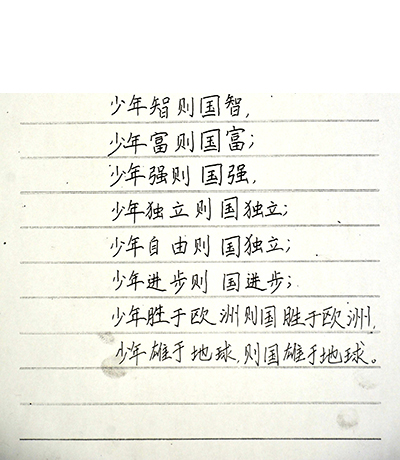 少年智则国智，
少年富则国富；
少年强则国强，
少年独立则国独立；
少年自由则国独立；
少年进步则国进步；
少年胜于欧洲则国胜于欧洲，
少年雄于地球，则国雄于地球。